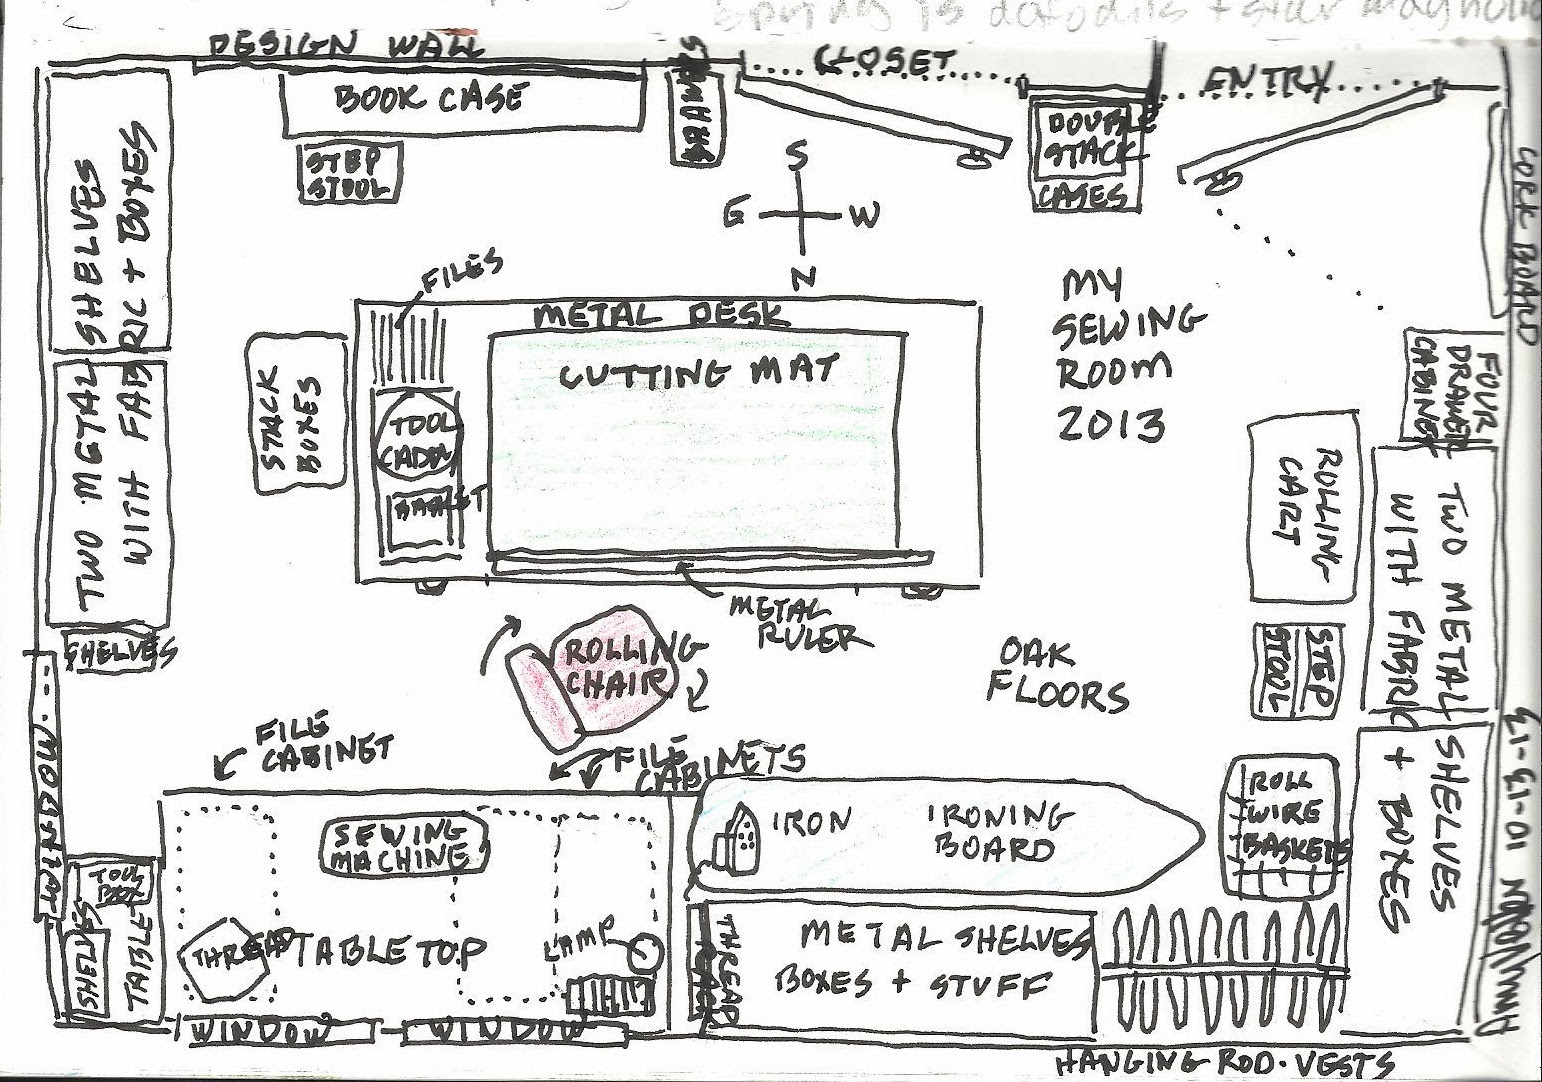 Spring is dafodils + star
DESIGN WALL
CLOSET
ENTRY
BOOK CASE
DRAWERS
DOUBLE
STACK
CASES
STEP
STOOL
S
W
N
CORK BOARD
TWO METAL SHELVES
WITH FABRIC + BOXES
FILES
METAL DESK
CUTTING MAT
MY
SEWING
ROOM
2013
STACK
BOXES
TOOL
CADDY
BASKET
FOUR
DRAWER
CABINET
ROLLING
CART
TWO METAL SHELVES
WITH FABRIC + BOXES
METAL
RULER
SHELVES
ROLLING
CHAIR
OAK
FLOORS
STEP
STOOL
WINDOW
FILE
CABINET
FILE
CABINETS
SEWING
MACHINE
IRON
IRONING
BOARD
ROLL
WIRE
BASKETS
TOOL
BOX
SHELVES
TABLE
THREAD
TABLE TOP
LAMP
THREAD
RACK
METAL SHELVES
BOXES + STUFF
WINDOW
WINDOW
HANGING ROD · VESTS
10-13-13